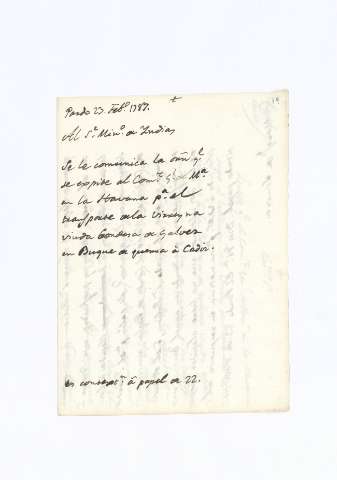 Pardo 23 Feb.º 1787.
Al S.r Min.o de Indias
Se le comunica la orn̄ q.e
se expide al Com.te G.l de M.a
en la Havana p.a el
transporte de la Virreyna
viuda Condesa de Galvez
en Buque de guerra à Cadiz.
es context.n à papel de 22.